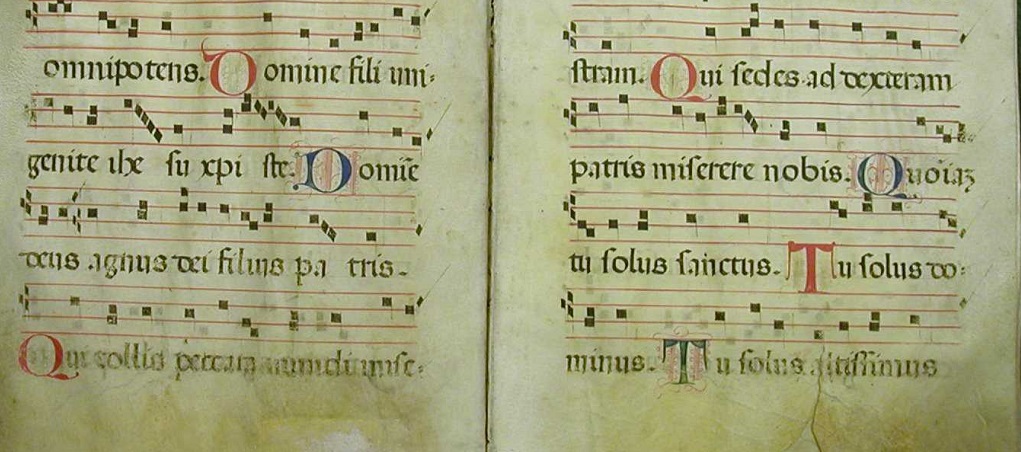 omnipotens. Domine fili uni-
genite ihe su xpi ste. Domīe
deus agnus dei filius pa tris.
Qui tollis peccata mundi mise-
stram. Qui sedes ad dexteram
patris miserere nobis. Quoiaꝫ
tu solus sanctus. Tu solus do-
minus. Tu solus altissimus